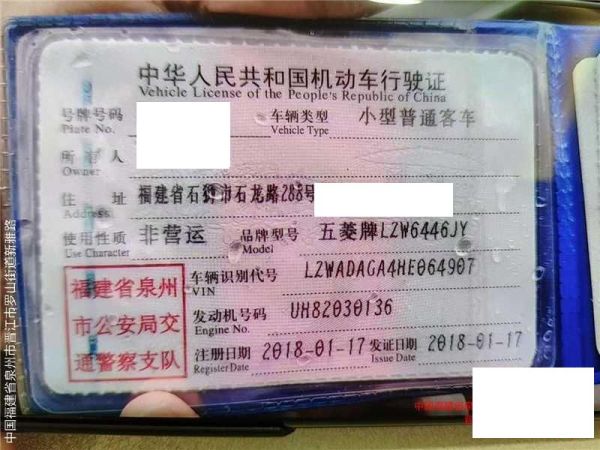 中华人民共和国机动车行驶证
Vehicle License of the People's Republic of China
号牌号码 车辆类型 小型普通客车
Plate No. Vehicle Type
所有人
Owner
住址 福建省石狮市石龙路288号
Address
使用性质 非营运 品牌型号 五菱牌LZW6446JY
Use Character Model
福建省泉州
市公安局交
通警察支队
车辆识别代号 LZWADAGA4HE064907
VIN
发动机号码 UH82030136
Engine No.
注册日期 2018-01-17 发证日期 2018-01-17
Register Date Issue Date
中国福建省泉州市晋江市罗山街道新雅路